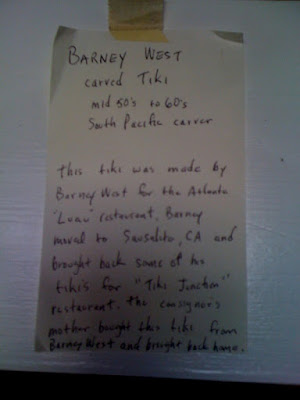 BARNEY WEST
carved Tiki
mid 50's to 60's
South Pacific carver
This tiki was made by
Barney West for the Atlanta
'Luau' restaurant. Barney
moved to Sausolito, CA and
brought back some of his
tikis for "Tiki Junction"
restaurant. The consignor's
mother bought this tiki from
Barney West and brought back home.